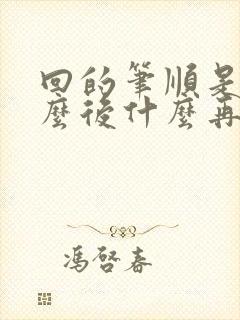 回的筆順是
麼後什麼再
馮啓春